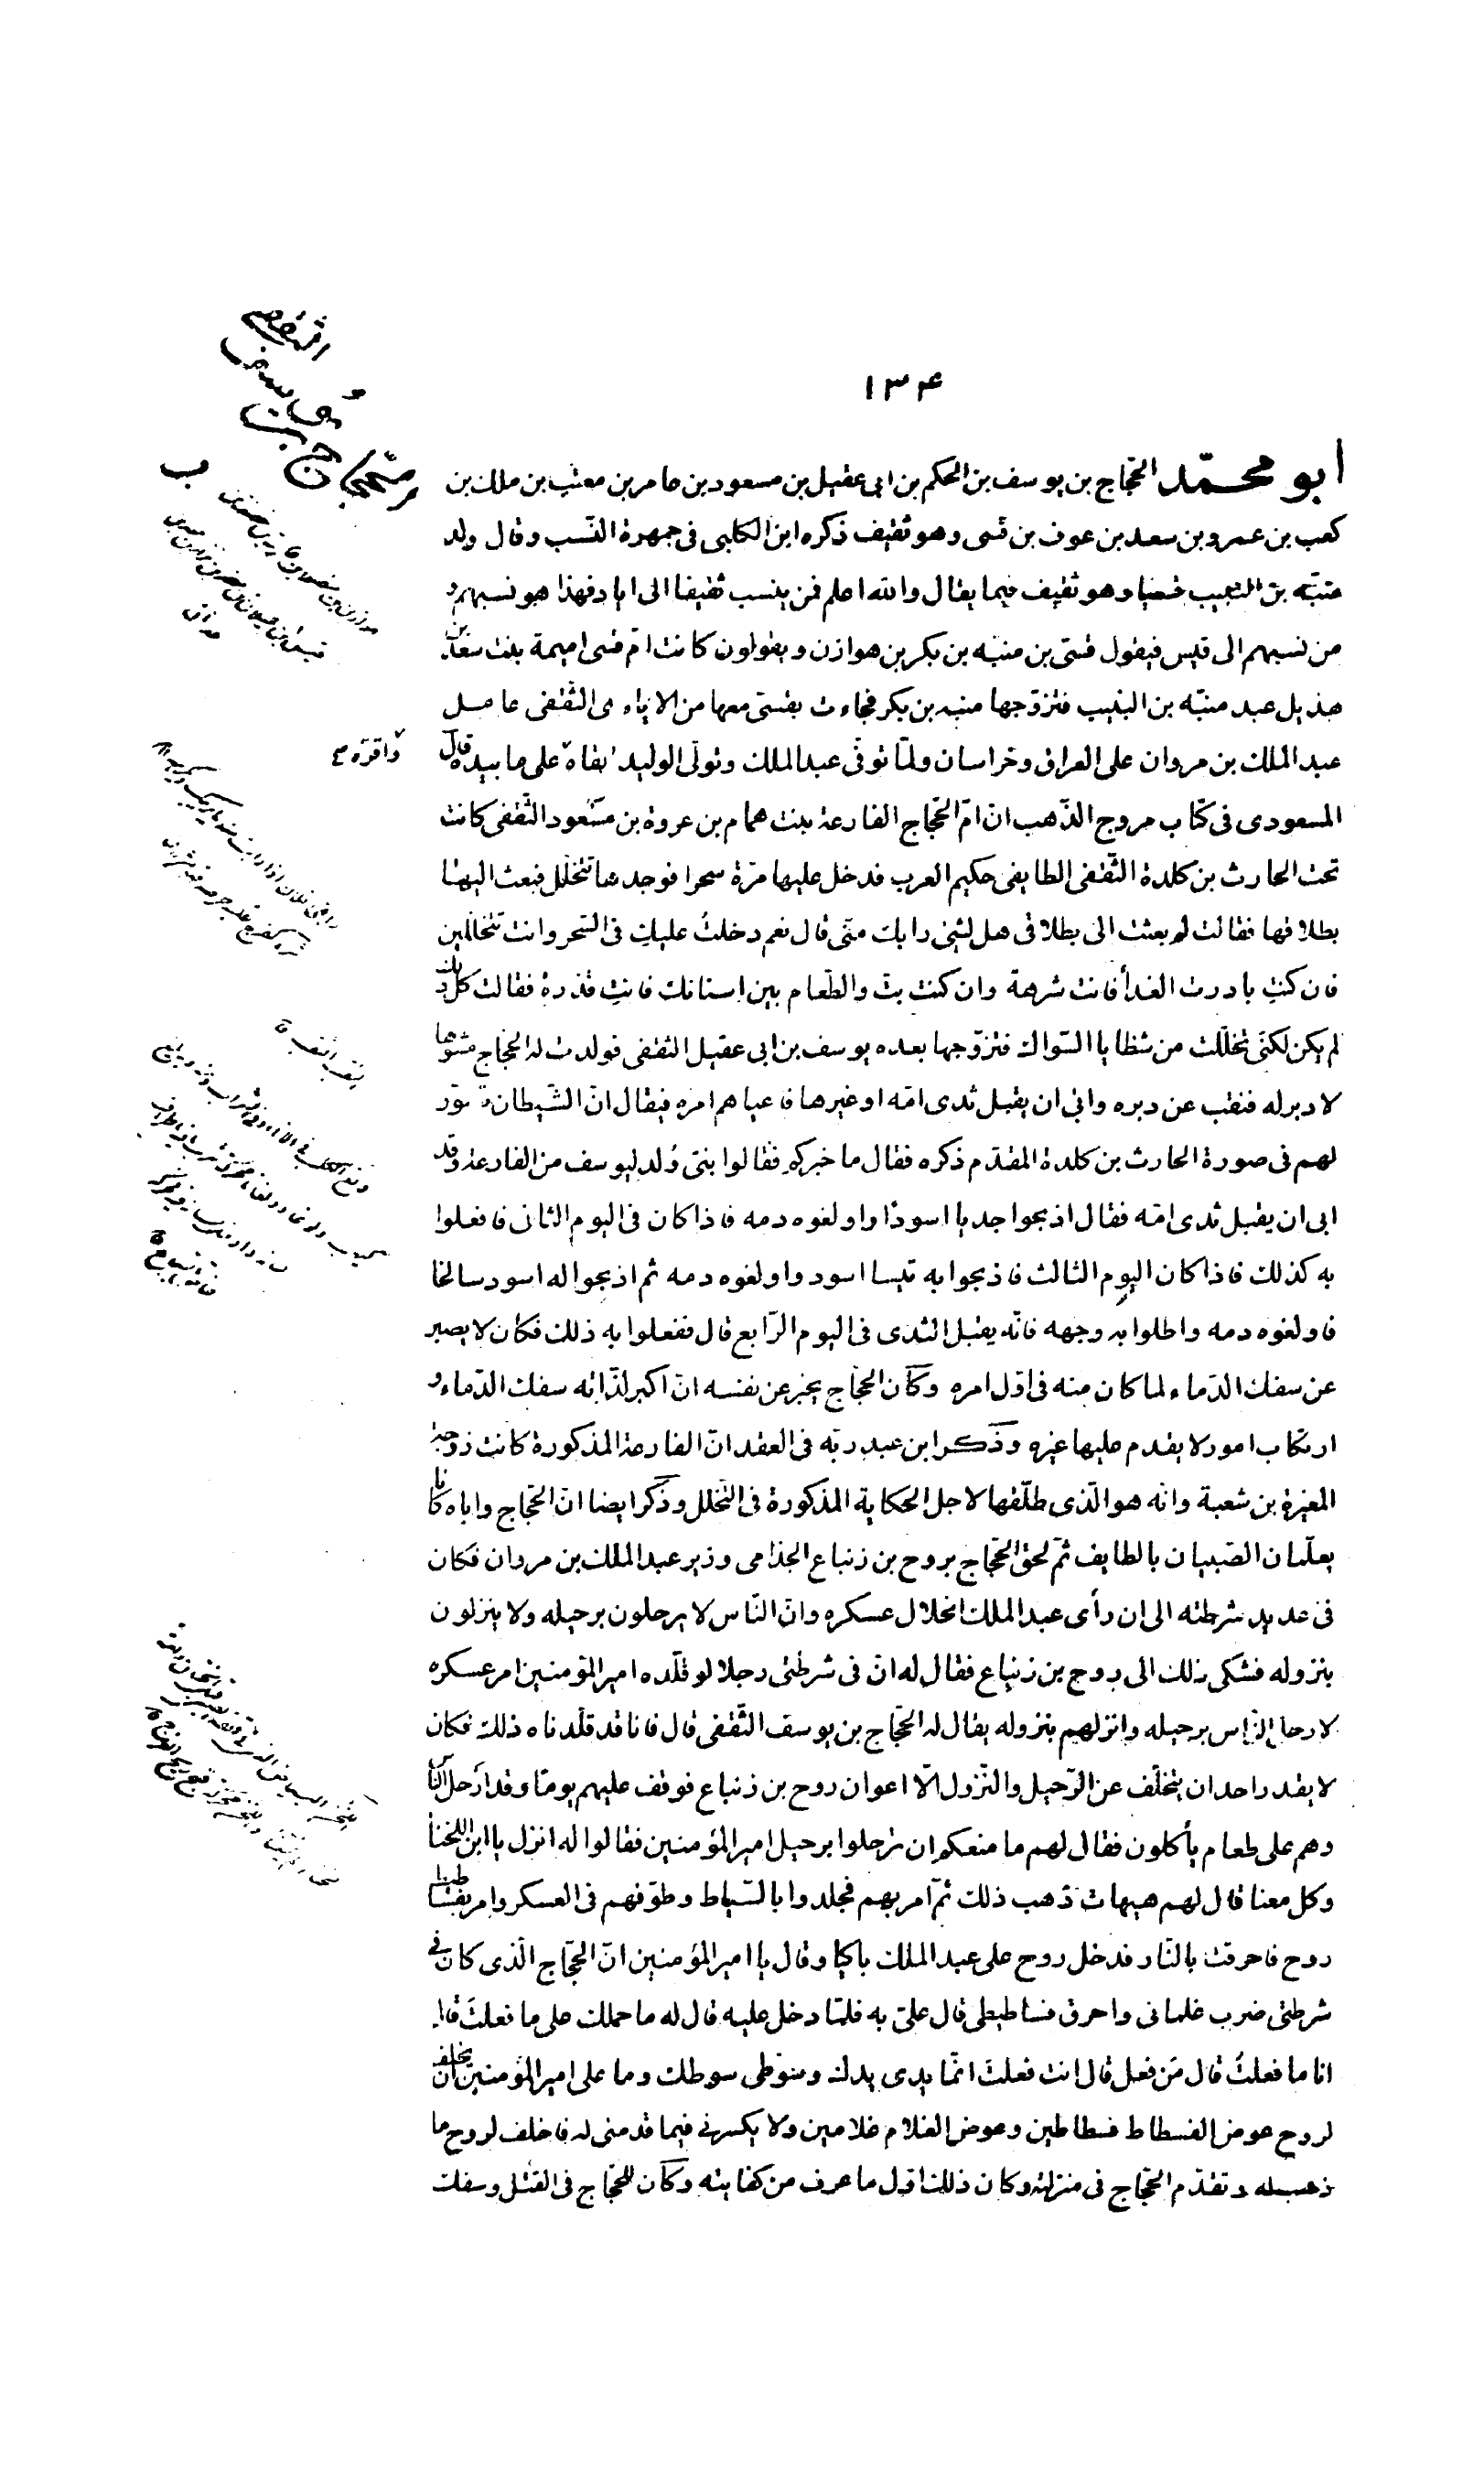 ١٣۴
أبو محمّد الحجّاج بن يوسف بن الحكم بن ابى عقيل بن مسعود بن عامر بن معتب بن ملك بن
كعب بن عمرو بن سعد بن عوف بن قسى وهو ثقيف ذكره ابن الكلبى فى جمهرة النّسب وقال ولد
منبّه بن النبيب قسيا وهو ثقيف فيما يقال والله اعلم فمن ينسب ثقيفا الى اياد فهذا هو نسبهم و
من نسبهم الى قيس فيقول قسّى بن منبّه بن بكر بن هوازن ويقولون كانت امّ قسى اميمة بنت سعد بن
هذيل عبد منبّه بن النبيب فتزوّجها منبه بن بكر فجاءت بقسّى معها من الايادى الثّقفى عامل
عبد الملك بن مروان على العراق وخراسان ولمّا توفّى عبد الملك وتولّى الوليد ابقاه على ما بيده قال
واقرّه
المسعودى فى كتاب مروج الذّهب انّ امّ الحجّاج الفارعة بنت همام بن عروة بن مسعود الثّقفى كانت
تحت الحارث بن كلدة الثّقفى الطايفى حكيم العرب فدخل عليها مرّة سحرا فوجدها تتخلّل فبعث اليها
بطلاقها فقالت لم بعثت الى بطلاقى هل لشئ رابك منّى قال نعم دخلتُ عليك فى السّحر وانت تتخلّلين
فان كنتِ بادرت الغدأ فانت شرهة وان كنت بتّ والطّعام بين اسنانك فانتِ قذرة فقالت كلّ ذلك
لم يكن لكنّى تخلّلت من شظايا السّواك فتزوّجها بعده يوسف بن ابى عقيل الثقفى فولدت له الحجّاج مشوها
لا دبر له فنقب عن دبره وابى ان يقبل ثدى امّه او غيرها فاعياهم امره فيقال انّ الشّيطان تصوّر
لهم فى صورة الحارث بن كلدة المقدّم ذكره فقال ما خبركم فقالوا بنىّ وُلد ليوسف من الفارعة وقد
ابى ان يقبل ثدى امّه فقال اذبحوا جديا اسودًا واولغوه دمه فاذا كان فى اليوم الثانى فافعلوا
به كذلك فاذا كان اليوم الثالث فاذبحوا به تيسا اسود واولغوه دمه ثم اذبحوا له اسود سالخا
فاولغوه دمه واطلوا به وجهه فانّه يقبل الثدى فى اليوم الرّابع قال ففعلوا به ذلك فكان لا يصبر
عن سفك الدّماء لما كان منه فى اوّل امره وكان الحجّاج يخبر عن نفسه انّ اكبر لذّاته سفك الدّماء و
ارتكاب امور لا يقدم عليها غيره وذكر ابن عبد ربّه فى العقد انّ الفارعة المذكورة كانت زوجة
المغيرة بن شعبة وانّه هو الّذى طلّقها لاجل الحكاية المذكورة فى التخلل وذكر ايضا انّ الحجّاج واباه كانا
يعلّمان الصّبيان بالطايف ثمّ لحق الحجّاج بروح بن زنباع الجذامى وزير عبد الملك بن مروان فكان
فى عديد شرطته الى ان رأى عبد الملك انحلال عسكره وانّ النّاس لا يرحلون برحيله ولا ينزلون
بنزوله فشكى ذلك الى روح بن زنباع فقال له انّ فى شرطتى رجلا لو قلّده امير المؤمنين امر عسكره
لارحل النّاس برحيله وانزلهم بنزوله يقال له الحجّاج بن يوسف الثّقفى قال فانا قد قلّدناه ذلك فكان
لا يقدر احد ان يتخلّف عن الرّحيل والنّزول الّا اعوان روح بن زنباع فوقف عليهم يومًا وقد أرحل النّاس
وهم على طعام يأكلون فقال لهم ما منعكم ان ترحلوا برحيل امير المؤمنين فقالوا له انزل يا ابن اللخنا
وكل معنا قال لهم هيهات ذهب ذلك ثمّ امر بهم فجلدوا بالسّياط وطوّفهم فى العسكر وامر بفساطيط
روح فاحرقت بالنّار فدخل روح على عبد الملك باكيا وقال يا امير المؤمنين انّ الحجّاج الّذى كان فى
شرطتى ضرب غلمانى واحرق فساطيطى قال علىّ به فلمّا دخل عليه قال له ما حملك على ما فعلتَ قال
انا ما فعلتُ قال مَن فعل قال انت فعلتَ انّما يدى يدك وسوطى سوطك وما على امير المؤمنين ان يخلف
لروح عوض الفسطاط فسطاطين وعوض الغلام غلامين ولا يكسرنى فيما قدمنى له فاخلف لروح ما
ذهب له وتقدّم الحجّاج فى منزلته وكان ذلك اوّل ما عرف من كفايته وكان للحجّاج فى القتل وسفك